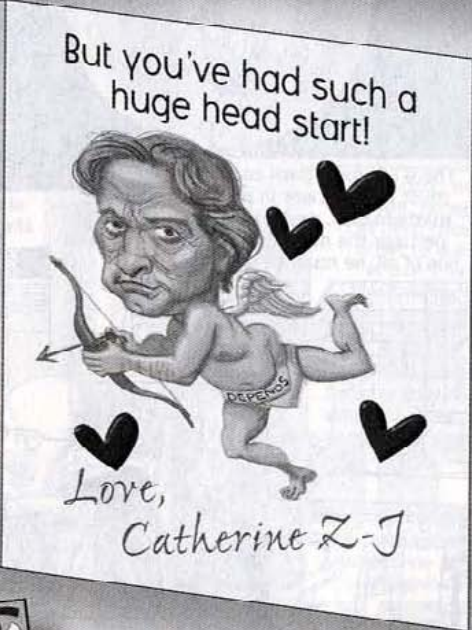 But you've had such a
huge head start!
DEPENDS
Love,
Catherine Z-J